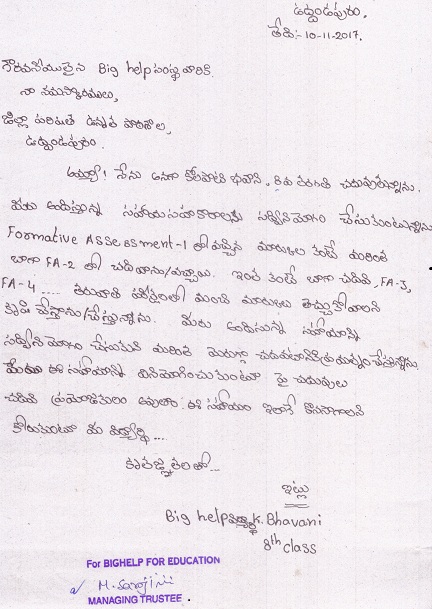 ఉద్దండపురం,
తేది:- 10-11-2017.
గౌరవనీయులైన Big help సంస్థ వారికి
నా నమస్కారములు,
జిల్లా పరిషత్ ఉన్నత పాఠశాల,
ఉద్దండపురం.
అయ్యా! నేను అనగా భవాని. 8వ తరగతి చదువుతున్నాను.
మీరు అందిస్తున్న సహాయసహకారాలను సద్వినియోగం చేసుకుంటున్నాను
Formative Assessment-1 లో వచ్చిన మార్కుల కంటే మరింత
బాగా FA-2 లో చదివాను/వచ్చాయి. ఇంత కంటే బాగా చదివి, FA-3,
FA-4 .... తరువాతి మంచి మార్కులు తెచ్చుకోవాలని
కృషి చేస్తాను/చేస్తున్నాను. మీరు అందిస్తున్న సహాయాన్ని
సద్వినియోగం చేయుచు మరింత మెరుగ్గా ప్రయత్నం చేస్తున్నాను
మీరు ఈ సహాయాన్ని వినియోగించుకుంటూ పై చదువులు
చదివి ఈ సహాయం ఇలాగే కొనసాగాలని
కోరుకుంటూ మీ విద్యార్థి ....
కృతజ్ఞతలతో...
ఇట్లు
Big help K. Bhavani
8th class
For BIGHELP FOR EDUCATION
M. Sarojini
MANAGING TRUSTEE.